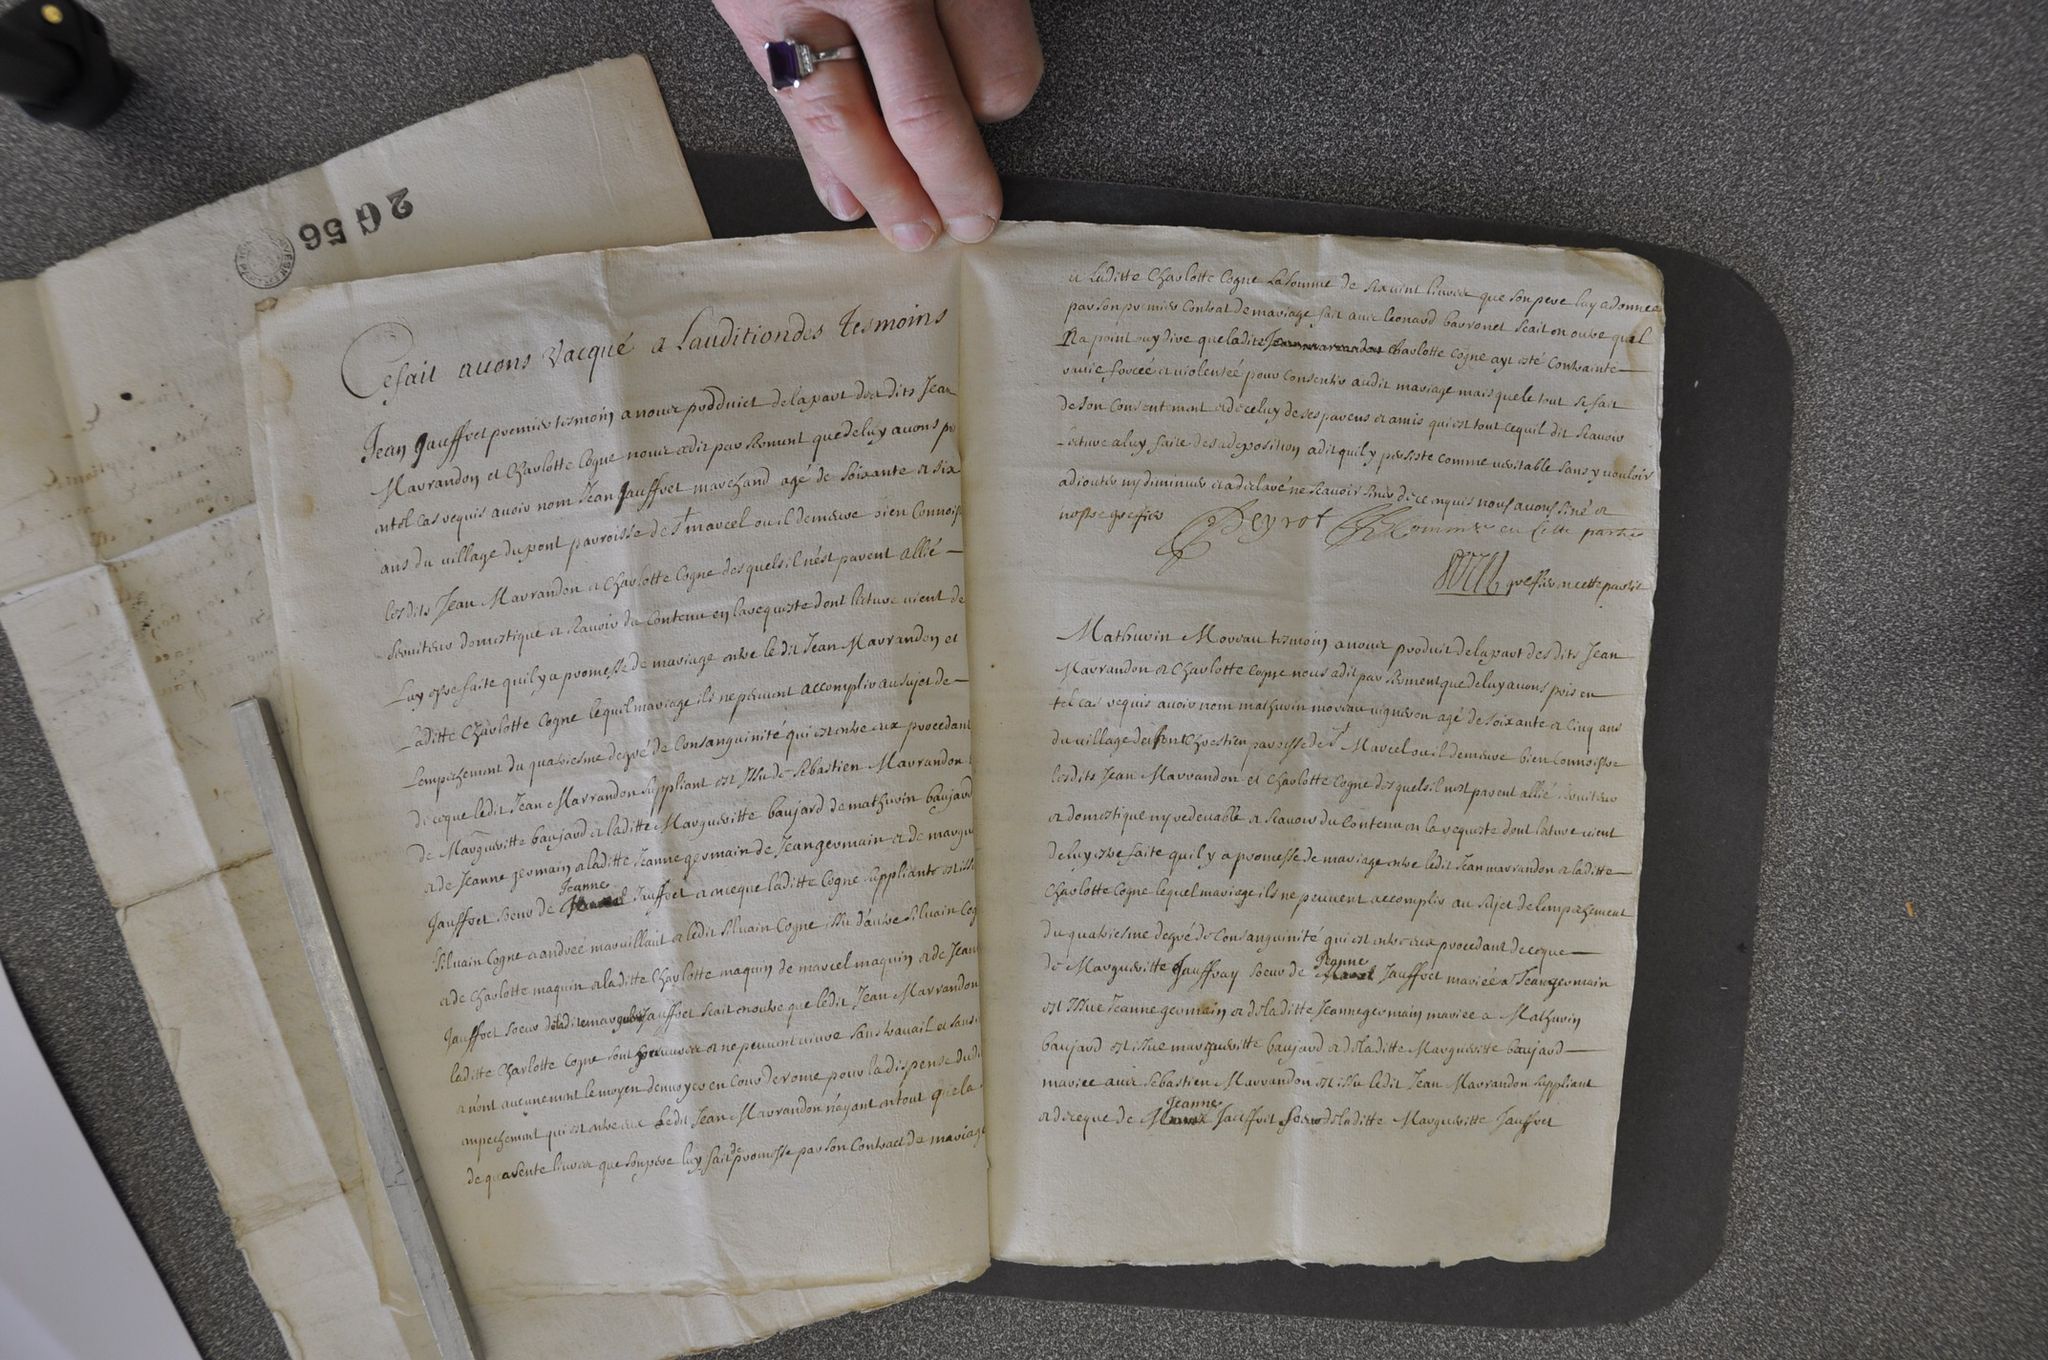 2 G 56
Cefait auons vacqué a Lauditiondes Tesmoins
Jean Jauffret premier tesmoin a nous produict delapart desdits Jean
Marrandon et Charlotte Cogne nous adit par serment quedeluy auons pr
entel cas requis auoir nom Jean Jauffret marchand agé de soixante et six
ans du village dupont parroisse de St marcel ou il demeure bien Connoist
lesdits Jean Marrandon et Charlotte Cogne desquels il nést parent allié
seruiteur domestique et scauoir du Contenu en larequeste dont lecture uient de
Luy estre faite quil y a promesse de mariage entre ledit Jean Marrandon et
Laditte Charlotte Cogne lequel mariage ils ne peuuent accomplir au sujet de
Lempechement du quatriesme degré de Consanguinité qui est entre eux procedant
de ceque ledit Jean Marrandon suppliant est issu de Sebastien Marrandon
de Margueritte baujard et laditte Margueritte baujard de mathurin baujard
et de Jeanne germain et laditte Jeanne germain de Jean germain et de margue
Jauffret soeur de Jeanne Jauffret et en ceque laditte Cogne suppliante est iss
siluain Cogne et andreé maruillaut et ledit siluain Cogne issu d'autre siluain Cog
et de Charlotte maquin et laditte Charlotte maquin de marcel maquin et de Jean
Jauffret soeur deladite Jauffret scait enoutre que ledit Jean Marrandon
laditte Charlotte Cogne sont pauures et ne peuuent uiure sans trauail et sans
a n'ont aucunement le moyen denuoyer en Cour de rome pour la dispense dud
empechement qui est entre eux Ledit Jean Marrandon n'ayant entout que la
de quarente liures que son pere luy fait de promesse par son Contract de mariage
a Laditte Charlotte Cogne Lasomme de six uint liures que son pere luy a donneé
par son premier Contrat de mariage fait auec leonard barronet scait en outre quil
Na point ouy dire que ladite Charlotte Cogne ayt esté Contrainte
rauie forcéé et violenteé pour consentir audit mariage mais que le tout se fait
de son Consentement et de celuy de ses parens et amis qui est tout cequil dit scauoir
Lecture a luy faite de sa deposition a dit quil y persiste comme ueritable sans y uouloir
adiouter ny diminuer et a declaré ne scauoir siner de ce enquis nous auons siné et
nostre greffier Peyrot Commre en Cette partie
greffier en cette partie
Mathurin Moreau tesmoin a nous produit delapart des dits Jean
Marrandon et Charlotte Cogne nous adit par serment que deluy auons pris en
tel cas requis auoir nom mathurin moreau uigneron agé de soixante et cinq ans
du uillage de parroisse de St Marcel ou il demeure bien Connoistre
lesdits Jean Marrandon et Charlotte Cogne desquels il nest parent allié seruiteur
et domestique ny redeuable et scauoir du Contenu en la requeste dont lecture uient
deluy estre faite quil y a promesse de mariage entre ledit Jean marrandon et laditte
Charlotte Cogne lequel mariage ils ne peuuent accomplir au sujet de lempechement
du quatriesme degré de Consanguinité qui est entre eux procedant de ceque
de Margueritte Jauffray soeur de Jeanne Jauffret mariéé a Jean germain
est issue Jeanne germain et de laditte Jeanne germain mariee a Mathurin
baujard est issue margueritte baujard et de laditte Margueritte baujard
mariee auec Sebastien Marrandon est issu ledit Jean Marrandon suppliant
et de ceque de Jeanne Jauffret soeur de laditte Margueritte Jauffret